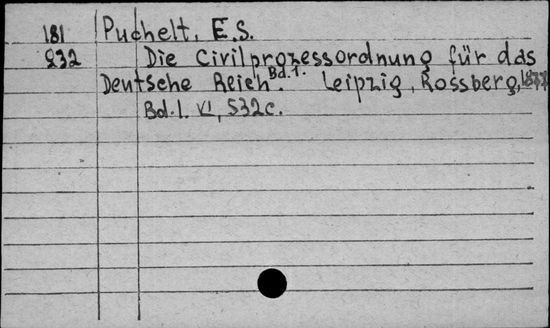 181 Puchelt, E.S.
232 Die Civilprozessordnung für das
Deutsche Reich. Bd.1. Leipzig, Rossberg, 1877
Bd.I. VI, 532c.